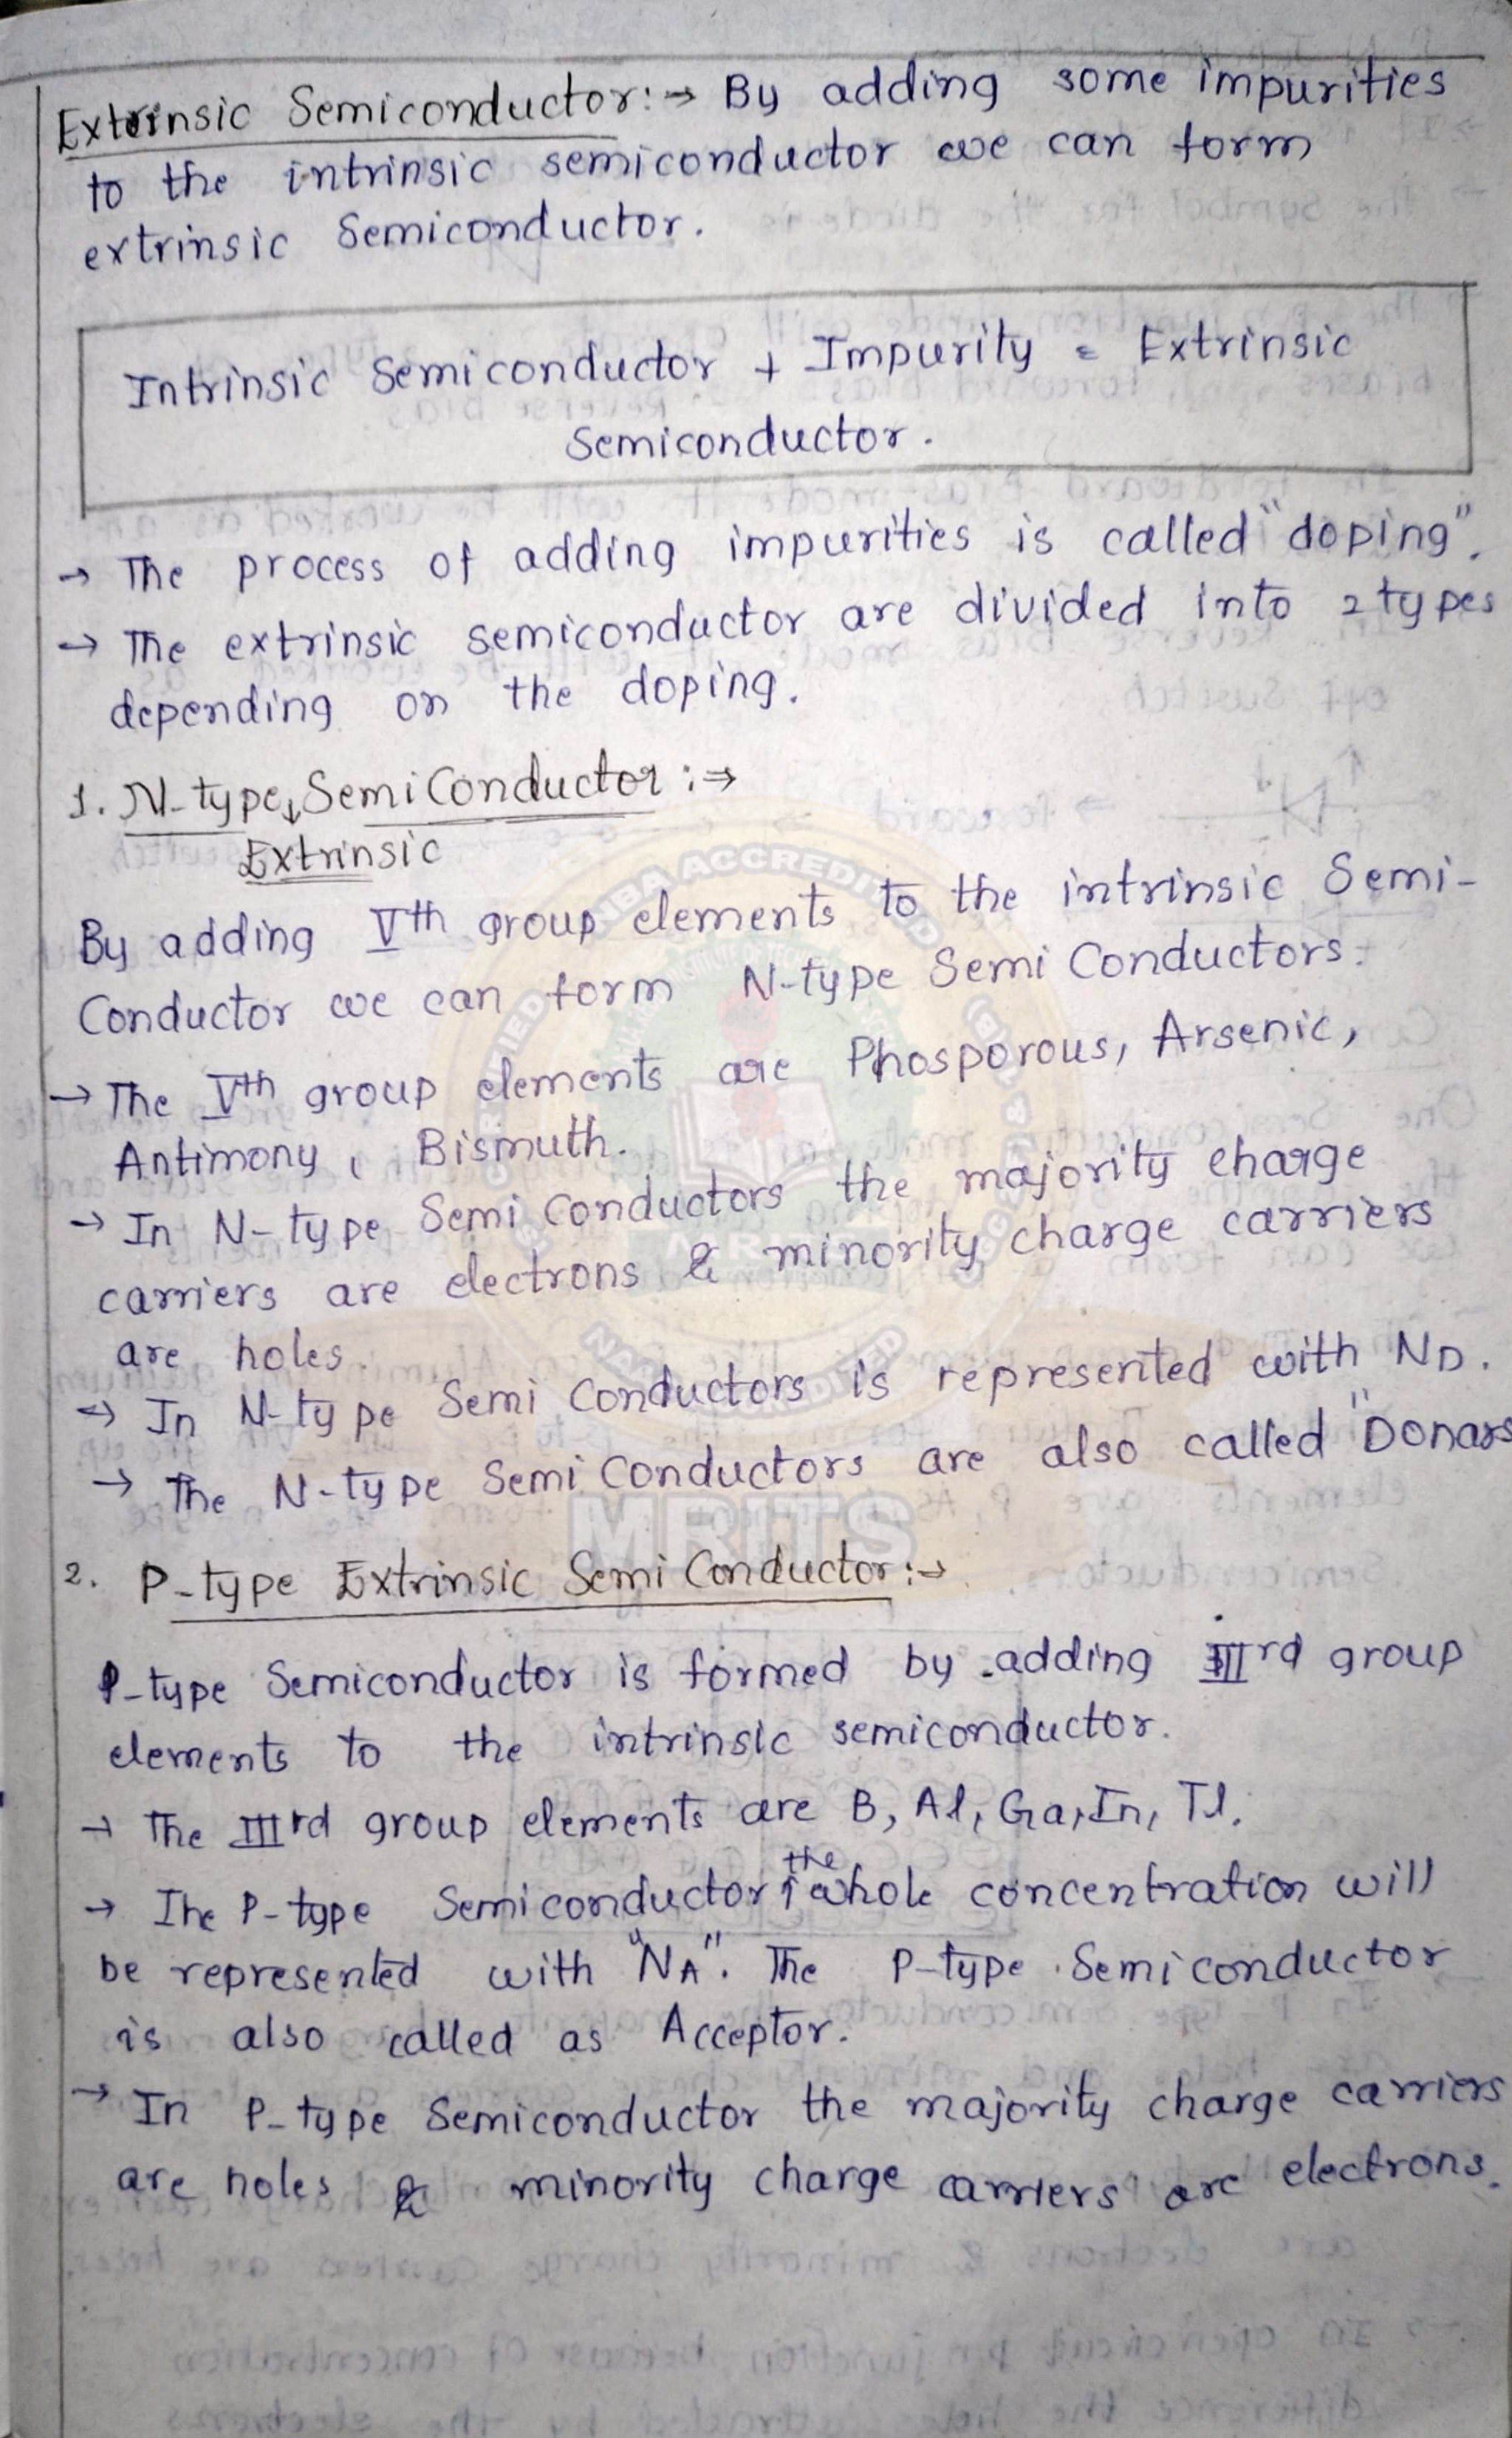 Extrinsic Semiconductor:→ By adding some impurities
to the intrinsic semiconductor we can form
extrinsic Semiconductor.
Intrinsic Semiconductor + Impurity = Extrinsic
Semiconductor.
→ The process of adding impurities is called "doping".
→ The extrinsic semiconductor are divided into 2 types
depending on the doping.
1. N-type↓SemiConductor :⇒
Extrinsic
By adding Vth group elements to the intrinsic Semi-
Conductor we can form N-type Semi Conductors.
→ The Vth group elements are Phosporous, Arsenic,
Antimony, Bismuth.
→ In N-type Semi Conductors the majority charge
carriers are electrons & minority charge carriers
are holes.
→ In N-type Semi Conductors is represented with ND.
→ The N-type Semi Conductors are also called "Donars
2. P-type Extrinsic Semi Conductor:→
P-type Semiconductor is formed by adding IIIrd group
elements to the intrinsic semiconductor.
→ The IIIrd group elements are B, Al, Ga, In, Tl.
the
→ The P-type Semiconductor↑whole concentration will
be represented with "NA". The P-type Semiconductor
is also called as Acceptor.
→ In P-type Semiconductor the majority charge carriers
are holes & minority charge carriers are electrons.
NBA ACCREDITED
MRITS